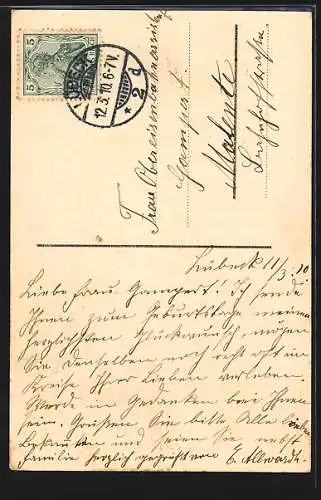 5 5
LÜBECK
12.3.10.6-7V.
* 2 d
Frau Obereisenbahnassistent
Gampert
Malente
Bahnhofstraße
Lübeck 11/3. 10
Liebe Frau Gampert! Ich sende
Ihnen zum Geburtstage meinen
herzlichsten Glückwunsch, mögen
Sie denselben noch recht oft im
Kreise Ihrer Lieben verleben.
Werde in Gedanken bei Ihnen
sein. Grüßen Sie bitte Alle lieben
Bekannten und seien Sie nebst
Familie herzlich gegrüßt von E. Allwardt.